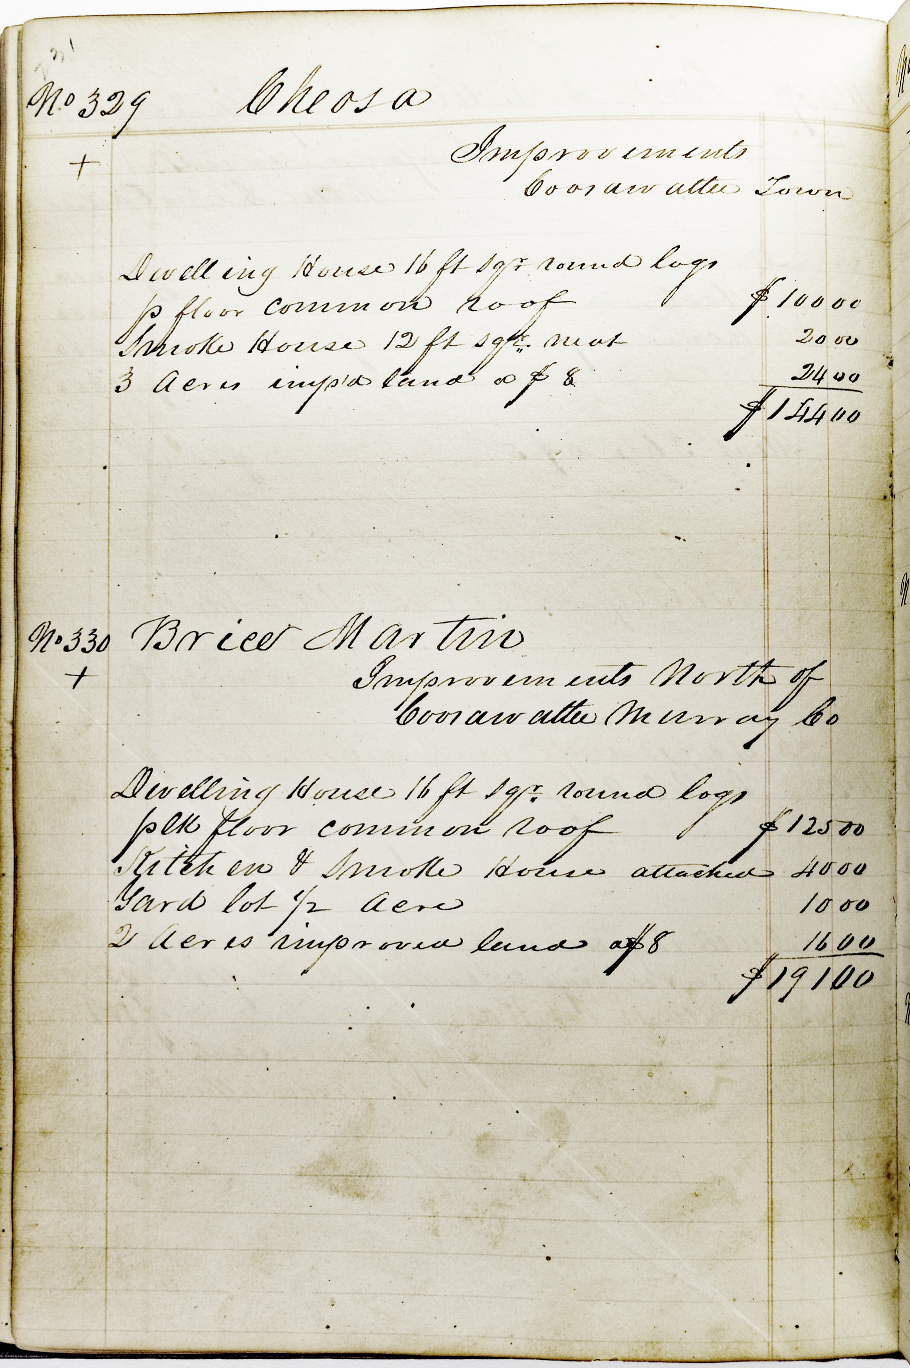 No 329 Cheosa
+
Improvements
Coosawattee Town
Dwelling House 16 ft sqr. round logs
p floor common roof $ 100 00
Smoke House 12 ft sqr. neat 20 00
3 Acres imp'd land a $ 8 24 00
$ 144 00
No 330 Brice Martin
+
Improvements North of
Coosawattee Murray Co
Dwelling House 16 ft sqr. round logs
plk floor common roof $ 125 00
Kitchen & Smoke House attached 40 00
Yard lot 1/2 Acre 10 00
2 Acres improved land a $ 8 16 00
$ 191 00